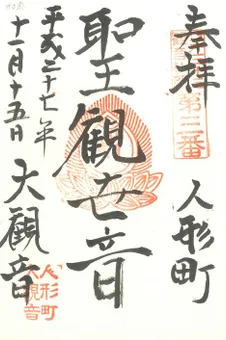 奉拝
第三番
人形町
聖観世音
大観音
平成二十七年
十一月十五日
人形町
大観音